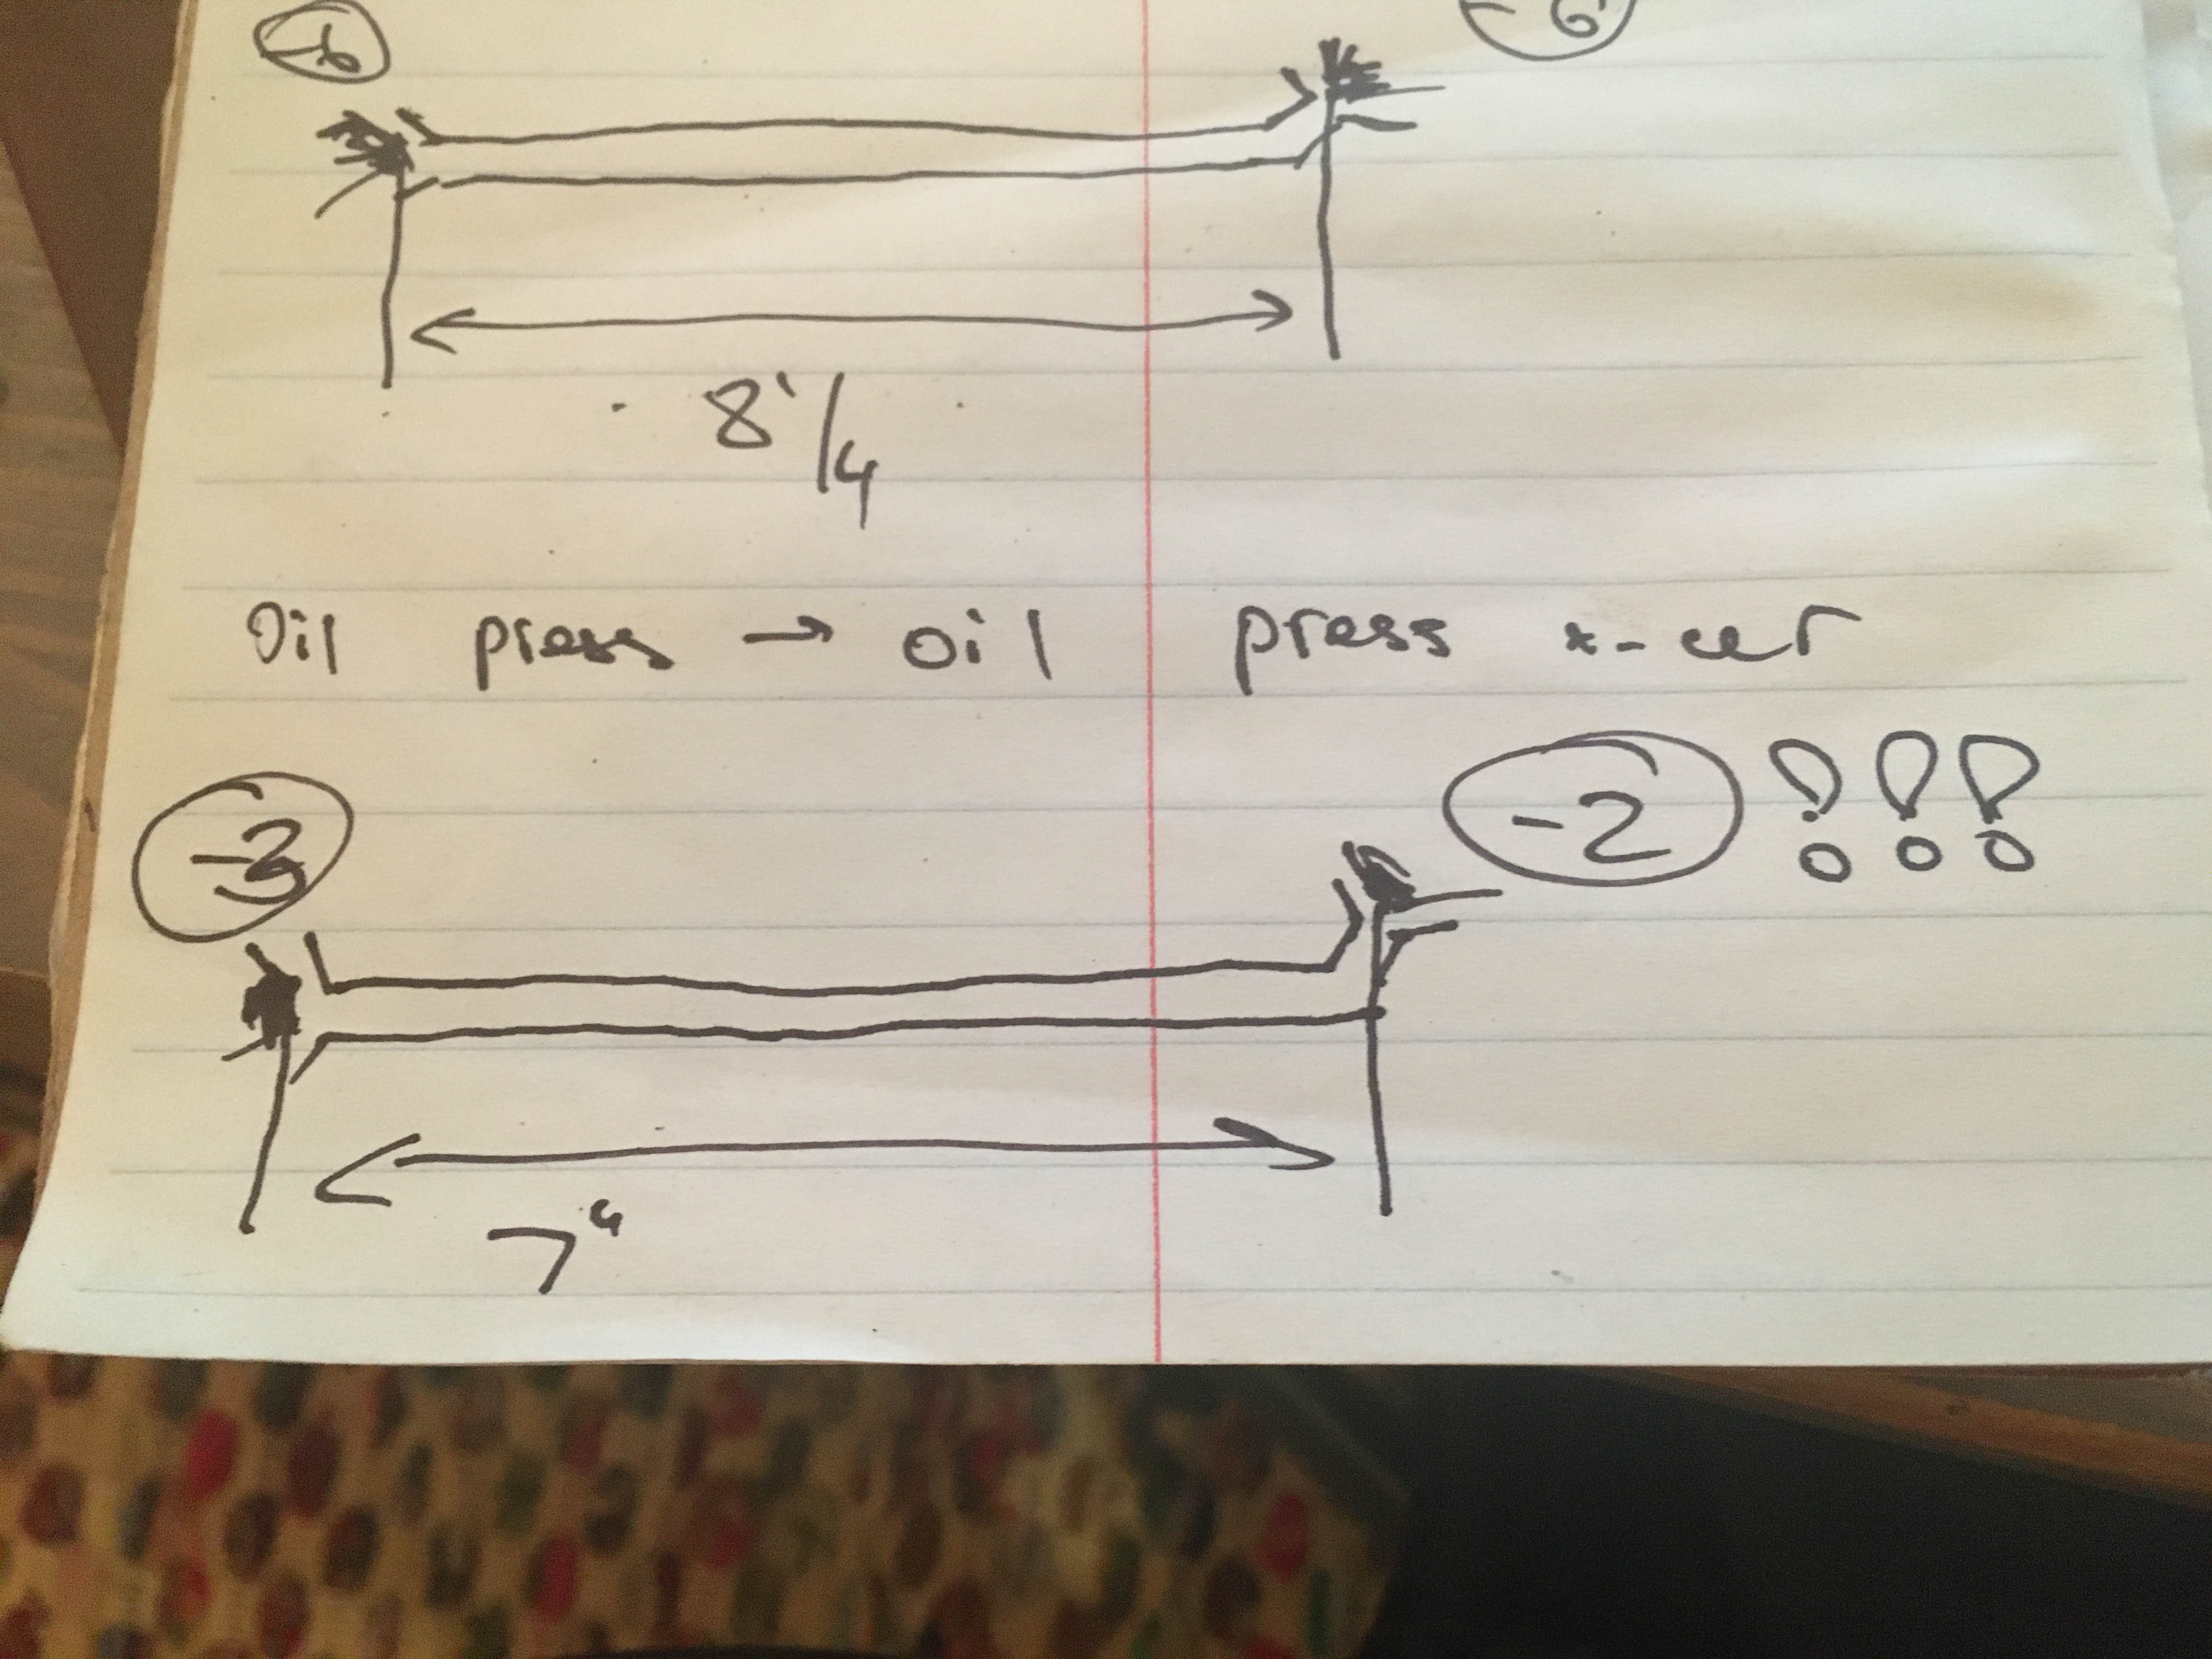 -6 -6
8 1/4
Oil press → oil press x-cer
-3 -2 !!!
7"